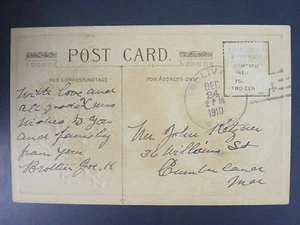 POST CARD.
FOR CORRESPONDENCE
FOR ADDRESS ONLY
With love and
all good Xmas
wishes to you
and family
from your
Brother Joe. K
DEC
24
1910
Mr John
36 Williams St
Cumberland